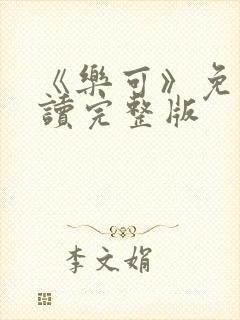 《樂可》免
讀完整版
李文娟